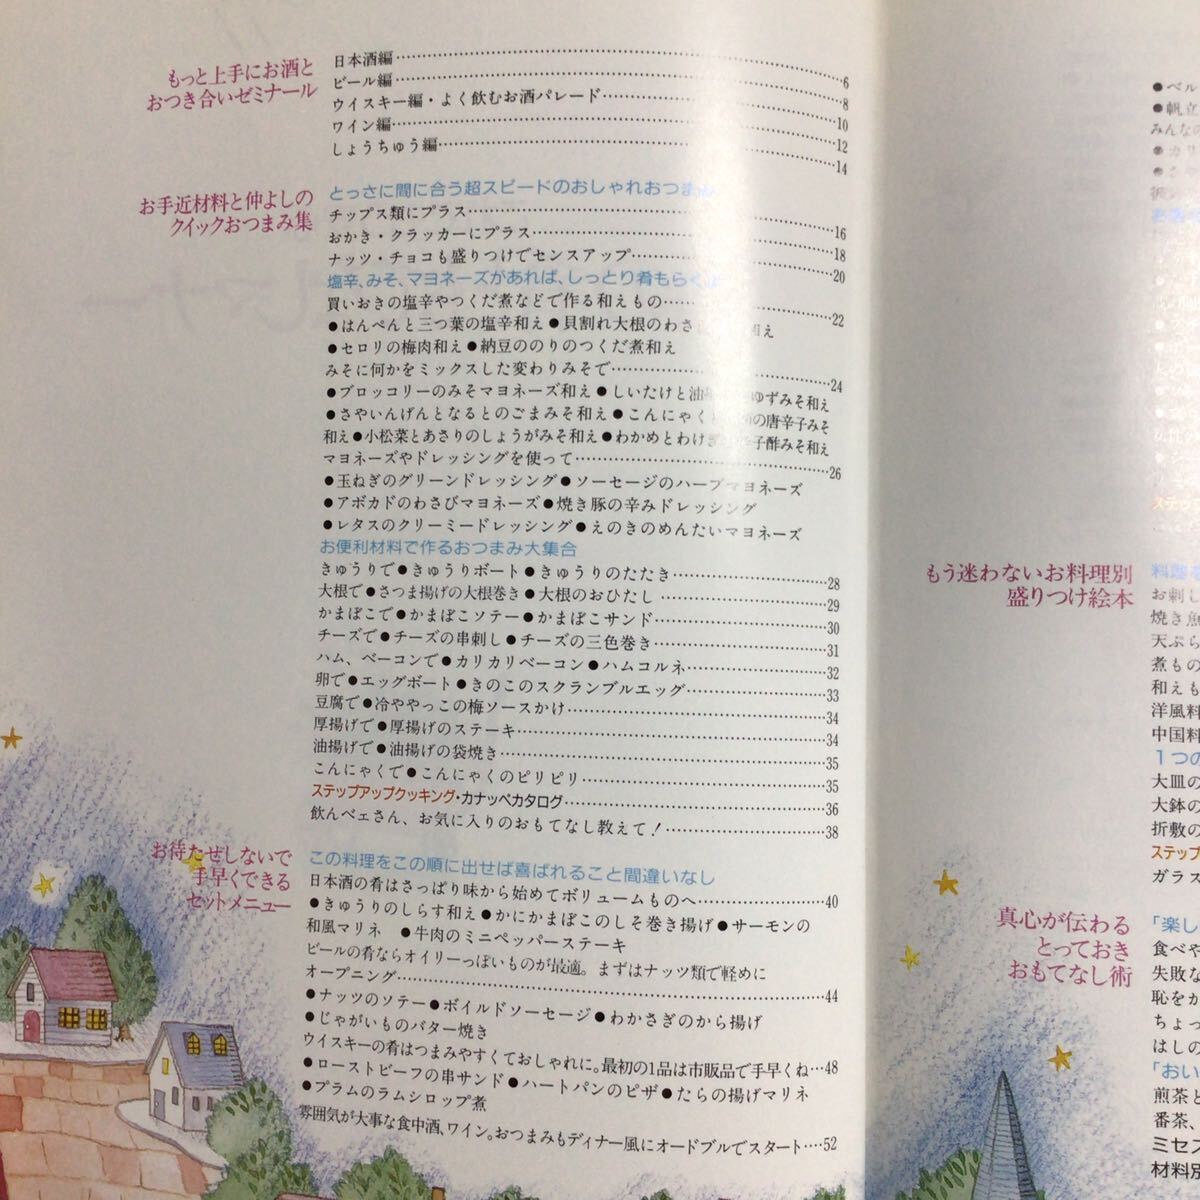 もっと上手にお酒と
おつき合いゼミナール
日本酒編 6
ビール編 8
ウイスキー編・よく飲むお酒パレード 10
ワイン編 12
しょうちゅう編 14
お手近材料と仲よしの
クイックおつまみ集
とっさに間に合う超スピードのおしゃれおつまみ
チップス類にプラス 16
おかき・クラッカーにプラス 18
ナッツ・チョコも盛りつけでセンスアップ 20
塩辛、みそ、マヨネーズがあれば、しっとり肴もらく
買いおきの塩辛やつくだ煮などで作る和えもの 22
●はんぺんと三つ葉の塩辛和え●貝割れ大根のわさ 和え
●セロリの梅肉和え●納豆ののりのつくだ煮和え
みそに何かをミックスした変わりみそで 24
●ブロッコリーのみそマヨネーズ和え●しいたけと油揚 ゆずみそ和え
●さやいんげんとなるとのごまみそ和え●こんにゃく の唐辛子みそ
和え●小松菜とあさりのしょうがみそ和え●わかめとわけぎ 子酢みそ和え
マヨネーズやドレッシングを使って 26
●玉ねぎのグリーンドレッシング●ソーセージのハーブマヨネーズ
●アボカドのわさびマヨネーズ●焼き豚の辛みドレッシング
●レタスのクリーミードレッシング●えのきのめんたいマヨネーズ
お便利材料で作るおつまみ大集合
きゅうりで●きゅうりボート●きゅうりのたたき 28
大根で●さつま揚げの大根巻き●大根のおひたし 29
かまぼこで●かまぼこソテー●かまぼこサンド 30
チーズで●チーズの串刺し●チーズの三色巻き 31
ハム、ベーコンで●カリカリベーコン●ハムコルネ 32
卵で●エッグボート●きのこのスクランブルエッグ 33
豆腐で●冷ややっこの梅ソースかけ 34
厚揚げで●厚揚げのステーキ 34
油揚げで●油揚げの袋焼き 35
こんにゃくで●こんにゃくのピリピリ 35
ステップアップクッキング・カナッペカタログ 36
飲んベェさん、お気に入りのおもてなし教えて! 38
お待たせしないで
手早くできる
セットメニュー
この料理をこの順に出せば喜ばれること間違いなし
日本酒の肴はさっぱり味から始めてボリュームものへ 40
●きゅうりのしらす和え●かにかまぼこのしそ巻き揚げ●サーモンの
和風マリネ ●牛肉のミニペッパーステーキ
ビールの肴ならオイリーっぽいものが最適。まずはナッツ類で軽めに
オープニング 44
●ナッツのソテー●ボイルドソーセージ●わかさぎのから揚げ
●じゃがいものバター焼き
ウイスキーの肴はつまみやすくておしゃれに。最初の1品は市販品で手早くね…48
●ローストビーフの串サンド●ハートパンのピザ●たらの揚げマリネ
●プラムのラムシロップ煮
雰囲気が大事な食中酒、ワイン。おつまみもディナー風にオードブルでスタート…52
●ベル
●帆立
みんな
●カリ
もう迷わないお料理別
盛りつけ絵本
お刺し
焼き魚
天ぷら
煮もの
和えも
洋風料
中国料
1つの
大皿の
大鉢の
折敷の
ステップ
ガラス
真心が伝わる
とっておき
おもてなし術
「楽し
食べや
失敗な
恥をか
ちょっ
はしの
「おい
煎茶と
番茶、
ミセス
材料別